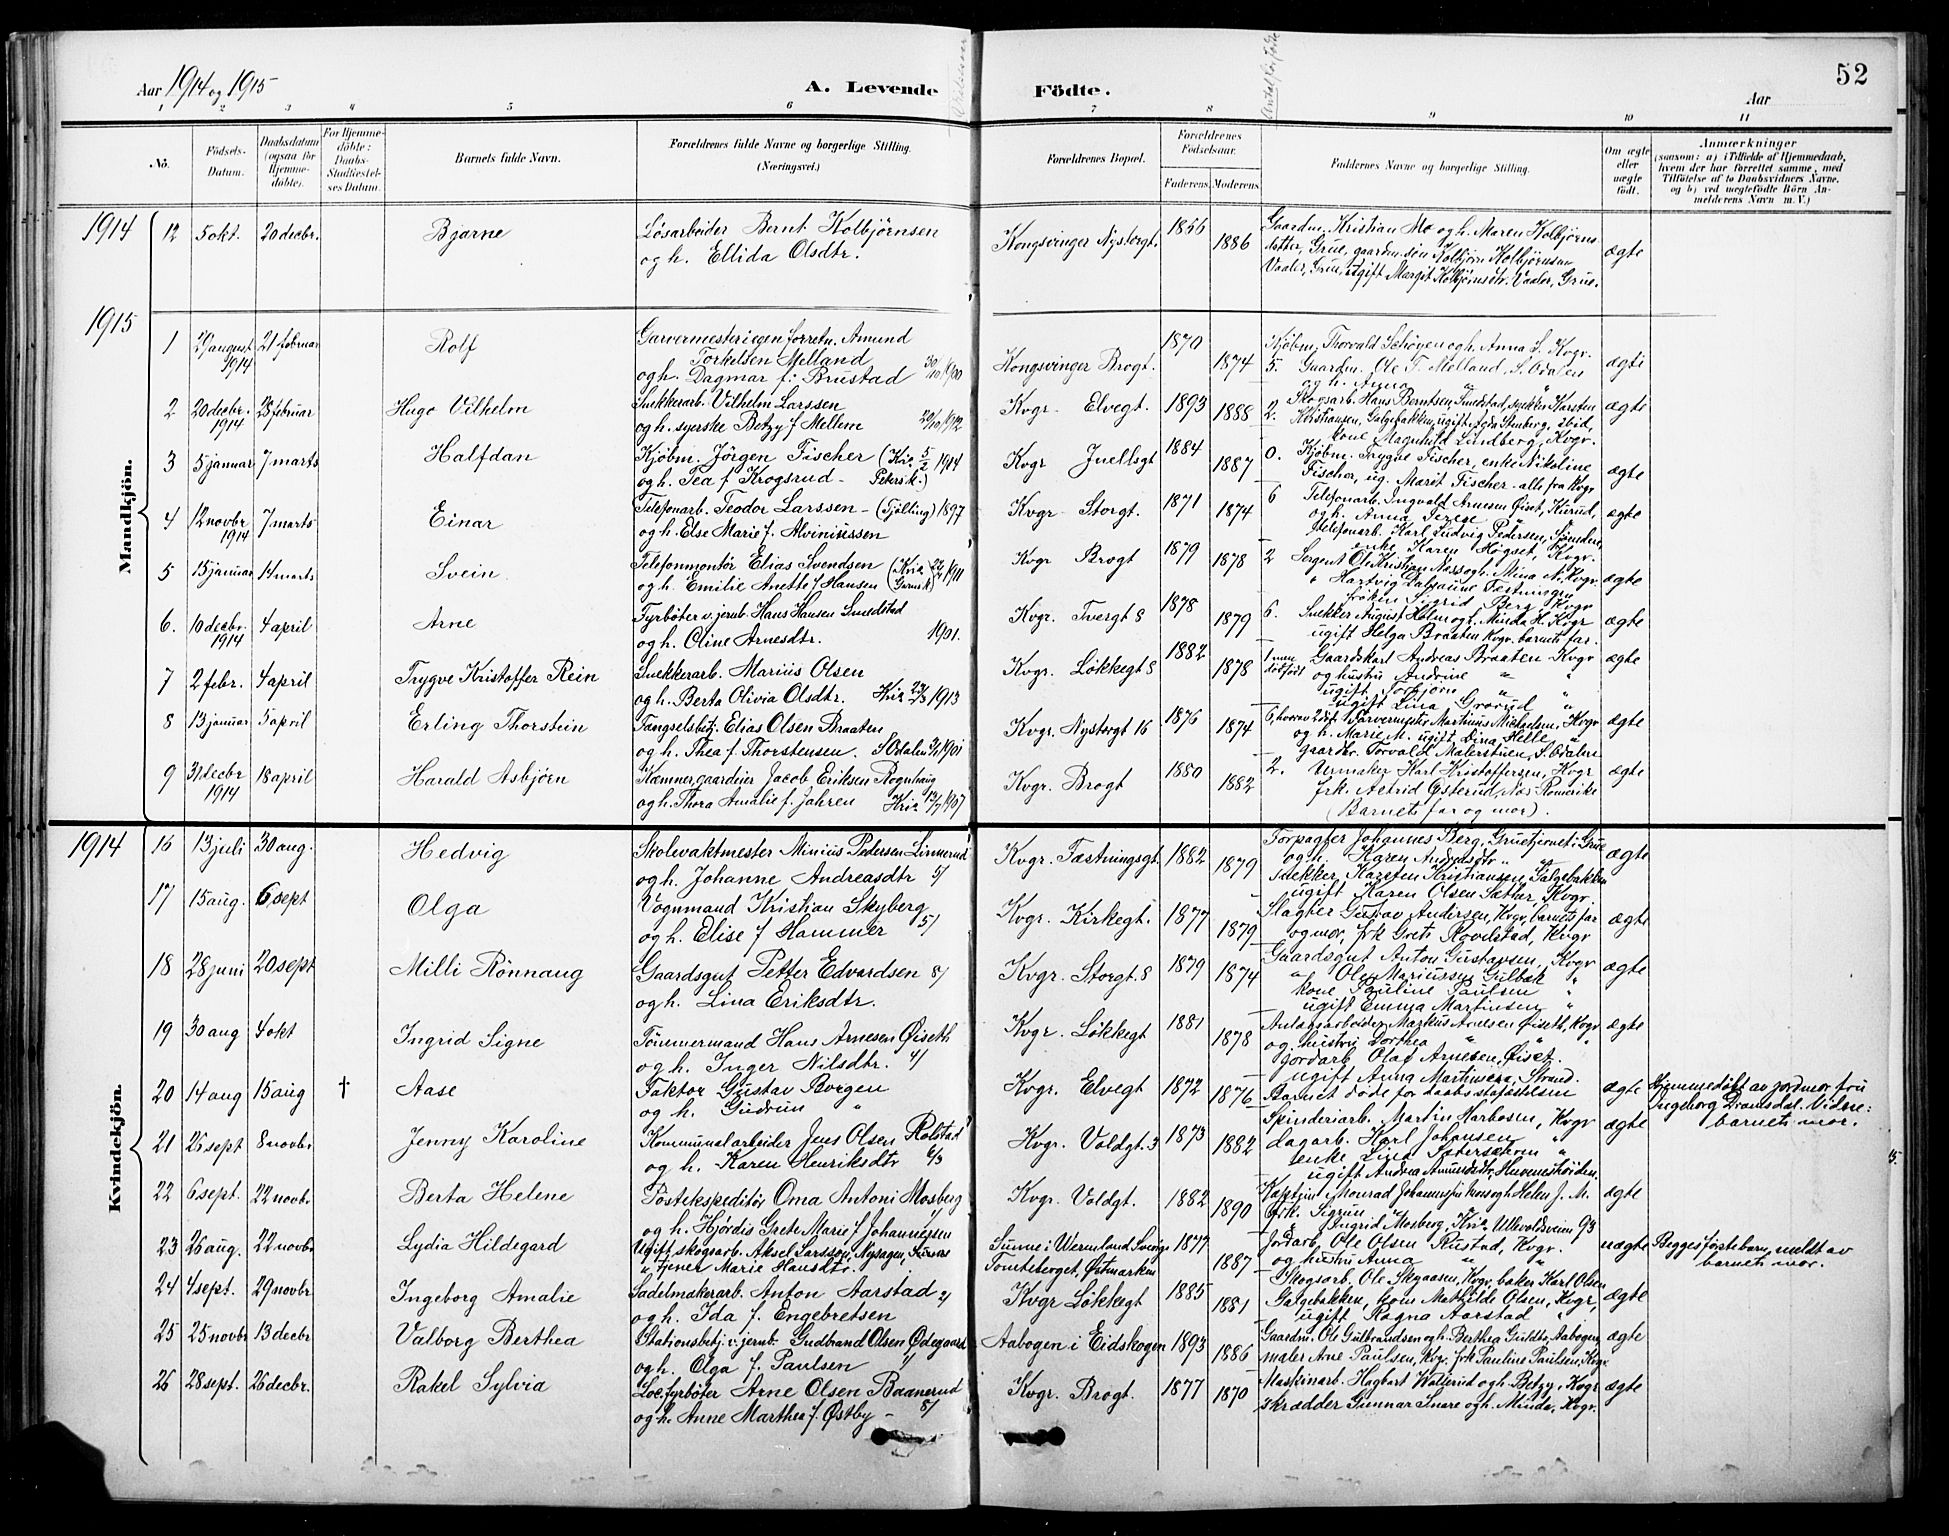 52
Aar 1914 og 1915 A. Levende Födte. Aar
1 2 3 4 5 6 7 8 9 10 11
No. Födsels-Datum. Daabsdatum (ogsaa for Hjemmedöbte). For Hjemmedöbte: Daabs-Stadfæstelses Datum. Barnets fulde Navn. Forældrenes fulde Navne og borgerlige Stilling. (Næringsvei.) Forældrenes Bopæl. Forældrenes Födselsaar. Faderens Moderens Faddernes Navne og borgerlige Stilling. Om ægte eller uægte födt. Anmærkninger (saasom: a) i Tilfælde af Hjemmedaab, hvem der har forrettet samme, med Tilföielse af to Daabsvidners Navne, og b) ved uægtefödte Börn Anmelderens Navn m. V.)
Mandkjön.
1914 12 5 okt. 20 decbr. Bjarne Løsarbeider Bernt Kolbjörnsen Kongsvinger Nystorgt. 1856 1886 Gaardm. Kristian Mo og h. Maren Kolbjørns ægte
og h. Ellida Olsdtr. datter, Grue, gaardm.søn Kolbjörn Kolbjörnsen
Vaaler, Grue, ugift Margit Kolbjörnsdtr. Vaaler, Grue.
1915 1 29 august 1914 21 februar Rolf Garvermester i egen forretn. Amund Kongsvinger Brogt. 1870 1874 Kjøbm. Thorvald Schøyen og h. Anna S. Kvgr. ægte
Torkelsen Melland 5. Gaardm. Ole T. Melland, S. Odalen
og h. Dagmar f. Brustad 30/10 1900 og h. Anna
2 20 decbr. 1914 28 februar Hugo Vilhelm Snekkerarb. Vilhelm Larssen Kvgr. Elvegt. 1893 1888 2. Skogsarb. Hans Berntsen, Smedstad, snekker Karsten ægte
og h. syerske Betzy f. Mellem 1912 Kristiansen, Galgebakken, ugift Stenberg, ibid,
kone Magnhild Lundberg, Kvgr.
3 5 januar 7 marts Halfdan Kjøbm. Jörgen Fischer (Kria 5/2 1914 Kvgr Juellsgt 1884 1887 0. Kjøbm. Trygve Fischer, enke Nikoline ægte
og h. Tea f Krogsrud - Petersk.) Fischer, ug. Marit Fischer - alle fra Kvgr
4 12 novbr 1914 7 marts Einar Telefonarb. Teodor Larssen - (Tjölling) 1897 Kvgr Storgt. 1871 1874 6 Telefonarb. Ingvald Arnesen Øiset, ægte
og h. Else Marie f. Alviniussen og h. Anna Terese
Telefonarb. Karl Ludvig Pedersen,
enke Karen Høgset, Kvgr.
5 15 januar 14 marts Svein Telefonmontør Elias Svendsen (Kria 1911 Kvgr Brogt 1879 1878 2 Sergent Ole Kristian Næss og h. Mina N. Kvgr ægte
og h. Emilie Anette f Hansen Hartvig Dalsaune Fæstningen
frøken Sigrid Berg Kvgr
6. 10 decbr. 1914 4 april Arne Fyrbøter v. jernb. Hans Hansen Smedstad Kvgr. Tvergt 8 1878 1879 6. Snekker August Holm og h. Minda H. Kvgr ægte
og h. Oline Arnesdtr. 1901. ugift Helga Braaten Kvgr. barnets far.
7 2 febr. 4 april Trygve Kristoffer Rein Snekkerarb. Marius Olsen Kvgr. Løkkegt 8 1882 1878 1 men dødfødt Gaardskarl Andreas Braaten Kvgr ægte
og h. Berta Olivia Olsdtr. Kria 23/3 1913 og hustru Andrine
ugift Torbjörn
ugift Lina Grorud
8 13 januar 5 april Erling Thorstein Fængselsbetj. Elias Olsen Braaten Kvgr. Nystorgt 16 1876 1874 6, hvorav 2 Farvermester Martinus Michaelsen, Kvgr ægte
og h. Thea f Thorstensen. S Odalen 1901 og h. Marie M. ugift Dina Helle
gaardbr. Torvald Malerstuen, S. Odalen
9 31 decbr 1914 18 april Harald Asbjörn Kæmnergaardeier Jacob Eriksen Rognhaug Kvgr. Brogt 1880 1882 2. Urmaker Karl Kristoffersen, Kvgr ægte
og h. Thora Amalie f. Jahren Kria 1907 frk. Astrid Østerud, Nes Romerike
(Barnets far og mor).
Kvindekjön.
1914 16 13 juli 30 aug. Hedvig Skolevaktmester Minius Pedersen Linnerud Kvgr. Fæstningsgt. 1882 1879 Forpagter Johannes Berg. Gruetjernet i Grue ægte
og h. Johanne Andreasdtr 5/ og h. Karen Andreasdtr
Snekker Karsten Kristiansen, Galgebakken
ugift Karen Olsen Sæther, Kvgr.
17 15 aug. 6 sept Olga Vognmand Kristian Skyberg Kvgr. Kirkegt. 1877 1879 Slagter Gustav Andersen, Kvgr, barnets far ægte
og h. Elise f Hammer 5/ og mor, frk Grete Rovelstad, Kvgr
18 28 juni 20 sept Milli Rönnaug Gaardsgut Petter Edvardsen 8/ Kvgr. Storgt. 8 1879 1874 Gaardsgut Anton Gustavsen, Kvgr ægte
og h. Lina Eriksdtr. Ole Mariussen Gulbæk
kone Pauline Paulsen
ugift Emma Martinsen
19 30 aug 4 okt Ingrid Signe Tömmermand Hans Arnesen Øiseth Kvgr. Løkkegt 1881 1878 Anlægsarbeider Markus Arnesen Øiseth, Kvgr ægte
og h. Inger Nilsdtr. 4/ og hustru Dorthea
jordarb. Olaf Arnesen, Øiset.
ugift Anna Martinsen, Strand.
20 14 aug 15 aug † Aase Faktor Gustav Borgen Kvgr. Elvegt 1872 1876 Barnet døde før daabsstadfæstelsen ægte Hjemmedøbt av jordmor fru
og h. Gudrun " Ingeborg Dramsdal. Vidne:
barnets mor.
21 26 sept 8 novbr Jenny Karoline Kommunalarbeider Jens Olsen Rolstad Kvgr. Voldgt. 3 1873 1882 Spinderiarb. Martin Marbosen, Kvgr ægte
og h. Karen Henriksdtr 6/3 dagarb. Karl Johansen
enke Lina
ugift Andrea Amundsdtr,
22 6 sept. 22 novbr Berta Helene Postekspeditör Oma Antoni Mosberg Kvgr. Voldgt. 1882 1890 Kaptein Monrad Johannesen og h. Helen J. M. ægte
og h. Hjördis Grete Marie f Johannesen frk. Sigrun
Ingrid Mosberg, Kria, Ullevoldsveien 93
23 26 aug. 22 novbr Lydia Hildegard Ugift skogsarb. Aksel Larsson, Nysagen, Sunne i Wermland Sverige 1877 1887 Jordarb. Ole Olsen Rustad, Kvgr. uægte Begges förstebarn, meldt av
" tjener Marie Hansdtr. Tomteberget, Østmarken og hustru Anna barnets mor.
24 4 sept. 29 novbr Ingeborg Amalie Sadelmakerarb. Anton Aarstad 2/ Kvgr Løkkegt 1885 1881 Skogsarb. Ole Skyaasen, Kvgr, baker Karl Olsen ægte
og h. Ida f. Engebretsen Galgebakken, kone Mathilde Olsen, Kvgr,
ugift Ragna Aarstad
25 25 novbr 13 decbr Valborg Berthea Stationsbetj. v. jernb. Gudbrand Olsen Ødegaard Aabogen i Eidskogen 1893 1886 Gaardm. Ole Gulbrandsen og h. Berthea Guldtr, Aabogen, ægte
og h. Olga f. Paulsen maler Arne Paulsen, Kvgr. frk Pauline Paulsen, Kvgr.
26 28 sept. 26 decbr. Rakel Sylvia Lok.fyrbøter Arne Olsen Baanerud Kvgr. Brogt. 1877 1870 Maskinarb. Hagbart Wallerud og h. Betzy, Kvgr ægte
og h. Anne Marthea f Østby - 8/ skrædder Gunnar Snare og h. Minda, Kvgr.